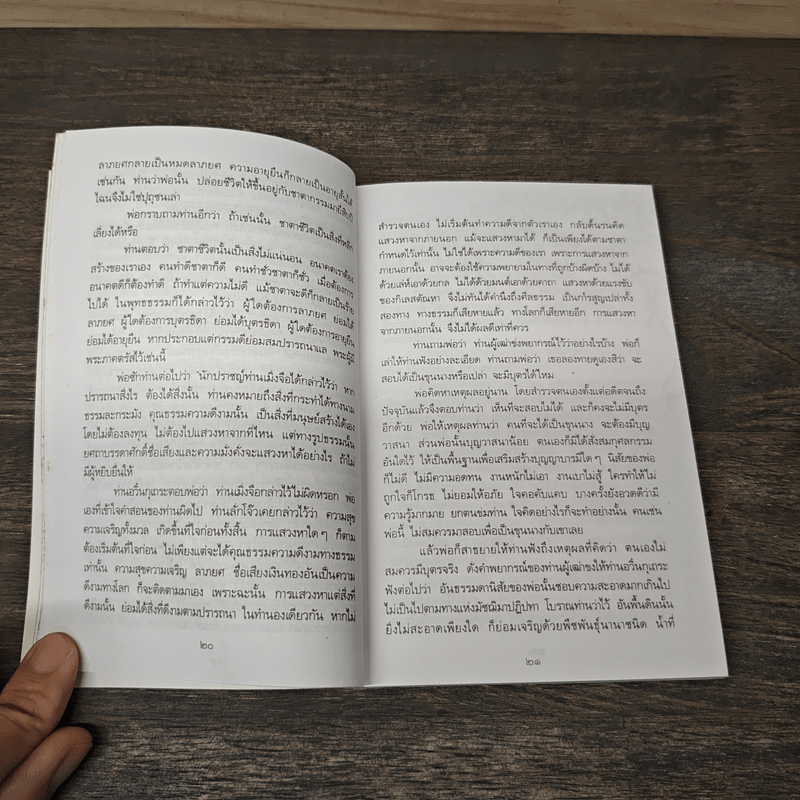 ลาภยศกลายเป็นหมดลาภยศ ความอายุยืนก็กลายเป็นอายุสั้นได้
เช่นกัน ท่านว่าพ่อนั้น ปล่อยชีวิตให้ขึ้นอยู่กับชาตากรรมมายี่สิบปี
ไฉนจึงไม่ใช่ปุถุชนเล่า
พ่อกราบถามท่านอีกว่า ถ้าเช่นนั้น ชาตาชีวิตเป็นสิ่งที่หลีก
เลี่ยงได้หรือ
ท่านตอบว่า ชาตาชีวิตนั้นเป็นสิ่งไม่แน่นอน อนาคตเราต้อง
สร้างของเราเอง คนทำดีชาตาก็ดี คนทำชั่วชาตาก็ชั่ว เมื่อต้องการ
อนาคตดีก็ต้องทำดี ถ้าทำแต่ความไม่ดี แม้ชาตาจะดีก็กลายเป็นร้าย
ไปได้ ในพุทธธรรมก็ได้กล่าวไว้ว่า ผู้ใดต้องการลาภยศ ย่อมได้
ลาภยศ ผู้ใดต้องการบุตรธิดา ย่อมได้บุตรธิดา ผู้ใดต้องการอายุยืน
ย่อมได้อายุยืน หากประกอบแต่กรรมดีย่อมสมปรารถนาแล พระผู้มี
พระภาคตรัสไว้เช่นนี้
พ่อซักท่านต่อไปว่า "นักปราชญ์ท่านเม่งจื๊อได้กล่าวไว้ว่า หาก
ปรารถนาสิ่งไร ต้องได้สิ่งนั้น ท่านคงหมายถึงสิ่งที่กระทำได้ทางนาม
ธรรมละกระมัง คุณธรรมความดีงามนั้น เป็นสิ่งที่มนุษย์สร้างได้เอง
โดยไม่ต้องลงทุน ไม่ต้องไปแสวงหาจากที่ไหน แต่ทางรูปธรรมนั้น
ยศถาบรรดาศักดิ์ชื่อเสียงและความมั่งคั่งจะแสวงหาได้อย่างไร ถ้าไม่
มีผู้หยิบยื่นให้
ท่านอวิ๋นกุเถระตอบพ่อว่า ท่านเม่งจื๊อกล่าวไว้ไม่ผิดหรอก พ่อ
เองที่เข้าใจคำสอนของท่านผิดไป ท่านลักโจ๊วเคยกล่าวไว้ว่า ความสุข
ความเจริญทั้งมวล เกิดขึ้นที่ใจก่อนทั้งสิ้น การแสวงหาใดๆ ก็ตาม
ต้องเริ่มต้นที่ใจก่อน ไม่เพียงแต่จะได้คุณธรรมความดีงามทางธรรม
เท่านั้น ความสุขความเจริญ ลาภยศ ชื่อเสียงเงินทองอันเป็นความ
ดีงามทางโลก ก็จะติดตามมาเอง เพราะฉะนั้น การแสวงหาแต่สิ่งที่
ดีงามนั้น ย่อมได้สิ่งที่ดีงามตามปรารถนา ในทำนองเดียวกัน หากไม่
๒๐
สำรวจตนเอง ไม่เริ่มต้นทำความดีจากตัวเราเอง กลับดิ้นรนคิด
แสวงหาจากภายนอก แม้จะแสวงหามาได้ ก็เป็นเพียงได้ตามชาตา
กำหนดไว้เท่านั้น ไม่ใช่ได้เพราะความดีของเรา เพราะการแสวงหาจาก
ภายนอกนั้น อาจจะต้องใช้ความพยายามในทางที่ถูกบ้างผิดบ้าง ไม่ได้
ด้วยเล่ห์เอาด้วยกล ไม่ได้ด้วยมนต์เอาด้วยคาถา แสวงหาด้วยแรงขับ
ของกิเลสตัณหา จึงไม่ทันได้คำนึงถึงศีลธรรม เป็นการสูญเปล่าทั้ง
สองทาง ทางธรรมก็เสียหายแล้ว ทางโลกก็เสียหายอีก การแสวงหา
จากภายนอกนั้น จึงไม่ได้ผลดีเท่าที่ควร
ท่านถามพ่อว่า ท่านผู้เฒ่าข่งพยากรณ์ไว้ว่าอย่างไรบ้าง พ่อก็
เล่าให้ท่านฟังอย่างละเอียด ท่านถามพ่อว่า เธอลองทายดูเองสิว่า จะ
สอบได้เป็นขุนนางหรือเปล่า จะมีบุตรได้ไหม
พ่อคิดหาเหตุผลอยู่นาน โดยสำรวจตนเองตั้งแต่อดีตจนถึง
ปัจจุบันแล้วจึงตอบท่านว่า เห็นทีจะสอบไม่ได้ และก็คงจะไม่มีบุตร
อีกด้วย พ่อให้เหตุผลท่านว่า คนที่จะได้เป็นขุนนาง จะต้องมีบุญ
วาสนา ส่วนพ่อนั้นบุญวาสนาน้อย ตนเองก็มิได้สั่งสมกุศลกรรม
อันใดไว้ ให้เป็นพื้นฐานเพื่อเสริมสร้างบุญญาบารมีใดๆ นิสัยของพ่อ
ก็ไม่ดี ไม่มีความอดทน งานหนักไม่เอา งานเบาไม่สู้ ใครทำให้ไม่
ถูกใจก็โกรธ ไม่ยอมให้อภัย ใจคอคับแคบ บางครั้งยังอวดดีว่ามี
ความรู้มากมาย ยกตนข่มท่าน ใจคิดอย่างไรก็จะทำอย่างนั้น คนเช่น
พ่อนี้ ไม่สมควรมาสอบเพื่อเป็นขุนนางกับเขาเลย
แล้วพ่อก็สาธยายให้ท่านฟังถึงเหตุผลที่คิดว่า ตนเองไม่
สมควรมีบุตรจริง ดั่งคำพยากรณ์ของท่านผู้เฒ่าข่งให้ท่านอวิ๋นกุเถระ
ฟังต่อไปว่า อันธรรมดานิสัยของพ่อนั้นชอบความสะอาดมากเกินไป
ไม่เป็นไปตามทางแห่งมัชฌิมาปฏิปทา โบราณท่านว่าไว้ อันพื้นดินนั้น
ยิ่งไม่สะอาดเพียงใด ก็ย่อมเจริญด้วยพืชพันธุ์นานาชนิด น้ำที่
๒๑